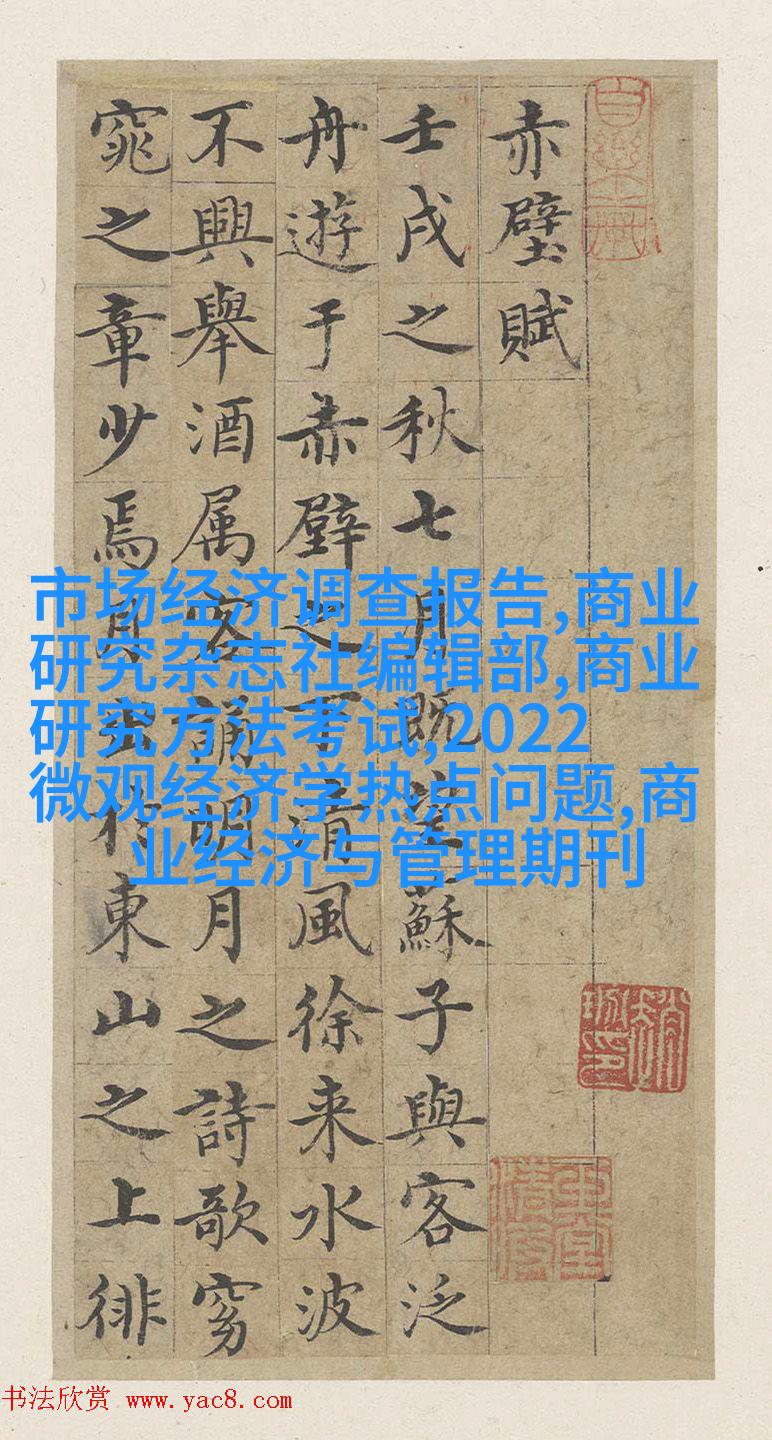 赤壁賦
壬戌之秋七月既望蘇子與客泛
舟遊于赤壁之下清風徐来水波
不興舉酒属客誦明月之詩歌窈
窕之章少焉月出於東山之上徘
市场经济调查报告,商业
研究杂志社编辑部,商业
研究方法考试,2022
微观经济学热点问题,商
业经济与管理期刊
书法欣赏 www.yac8.com